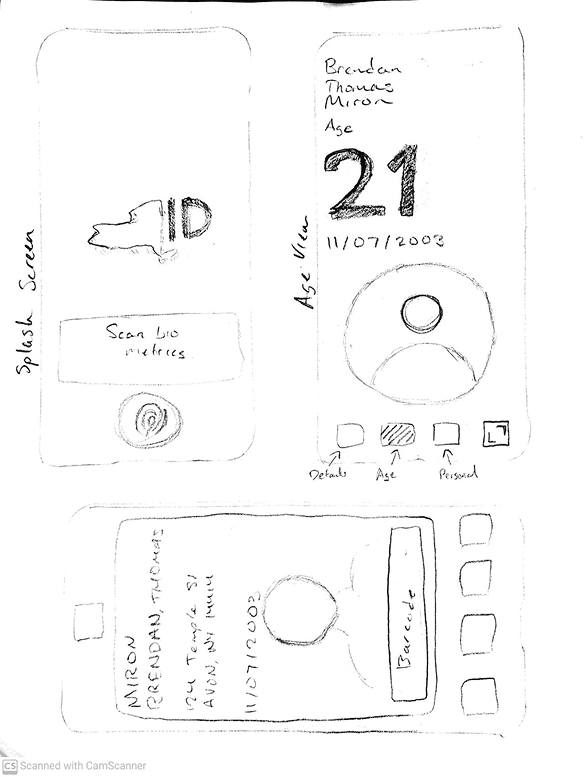 Splash Screen
ID
Scan bio
metrics.
Age View
Brendan
Thomas
Miron
Age
21
11/07/2003
Details
Age
Personal
MIRON
BRENDAN, THOMAS
124 Temple St
AVON, NY
11/07/2003
Barcode
CS Scanned with CamScanner